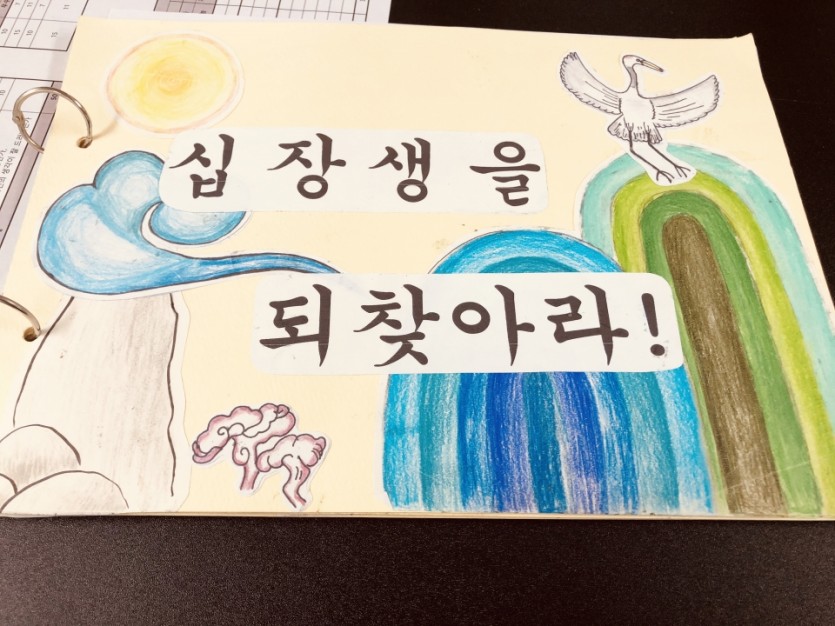 십장생을
되찾아라!